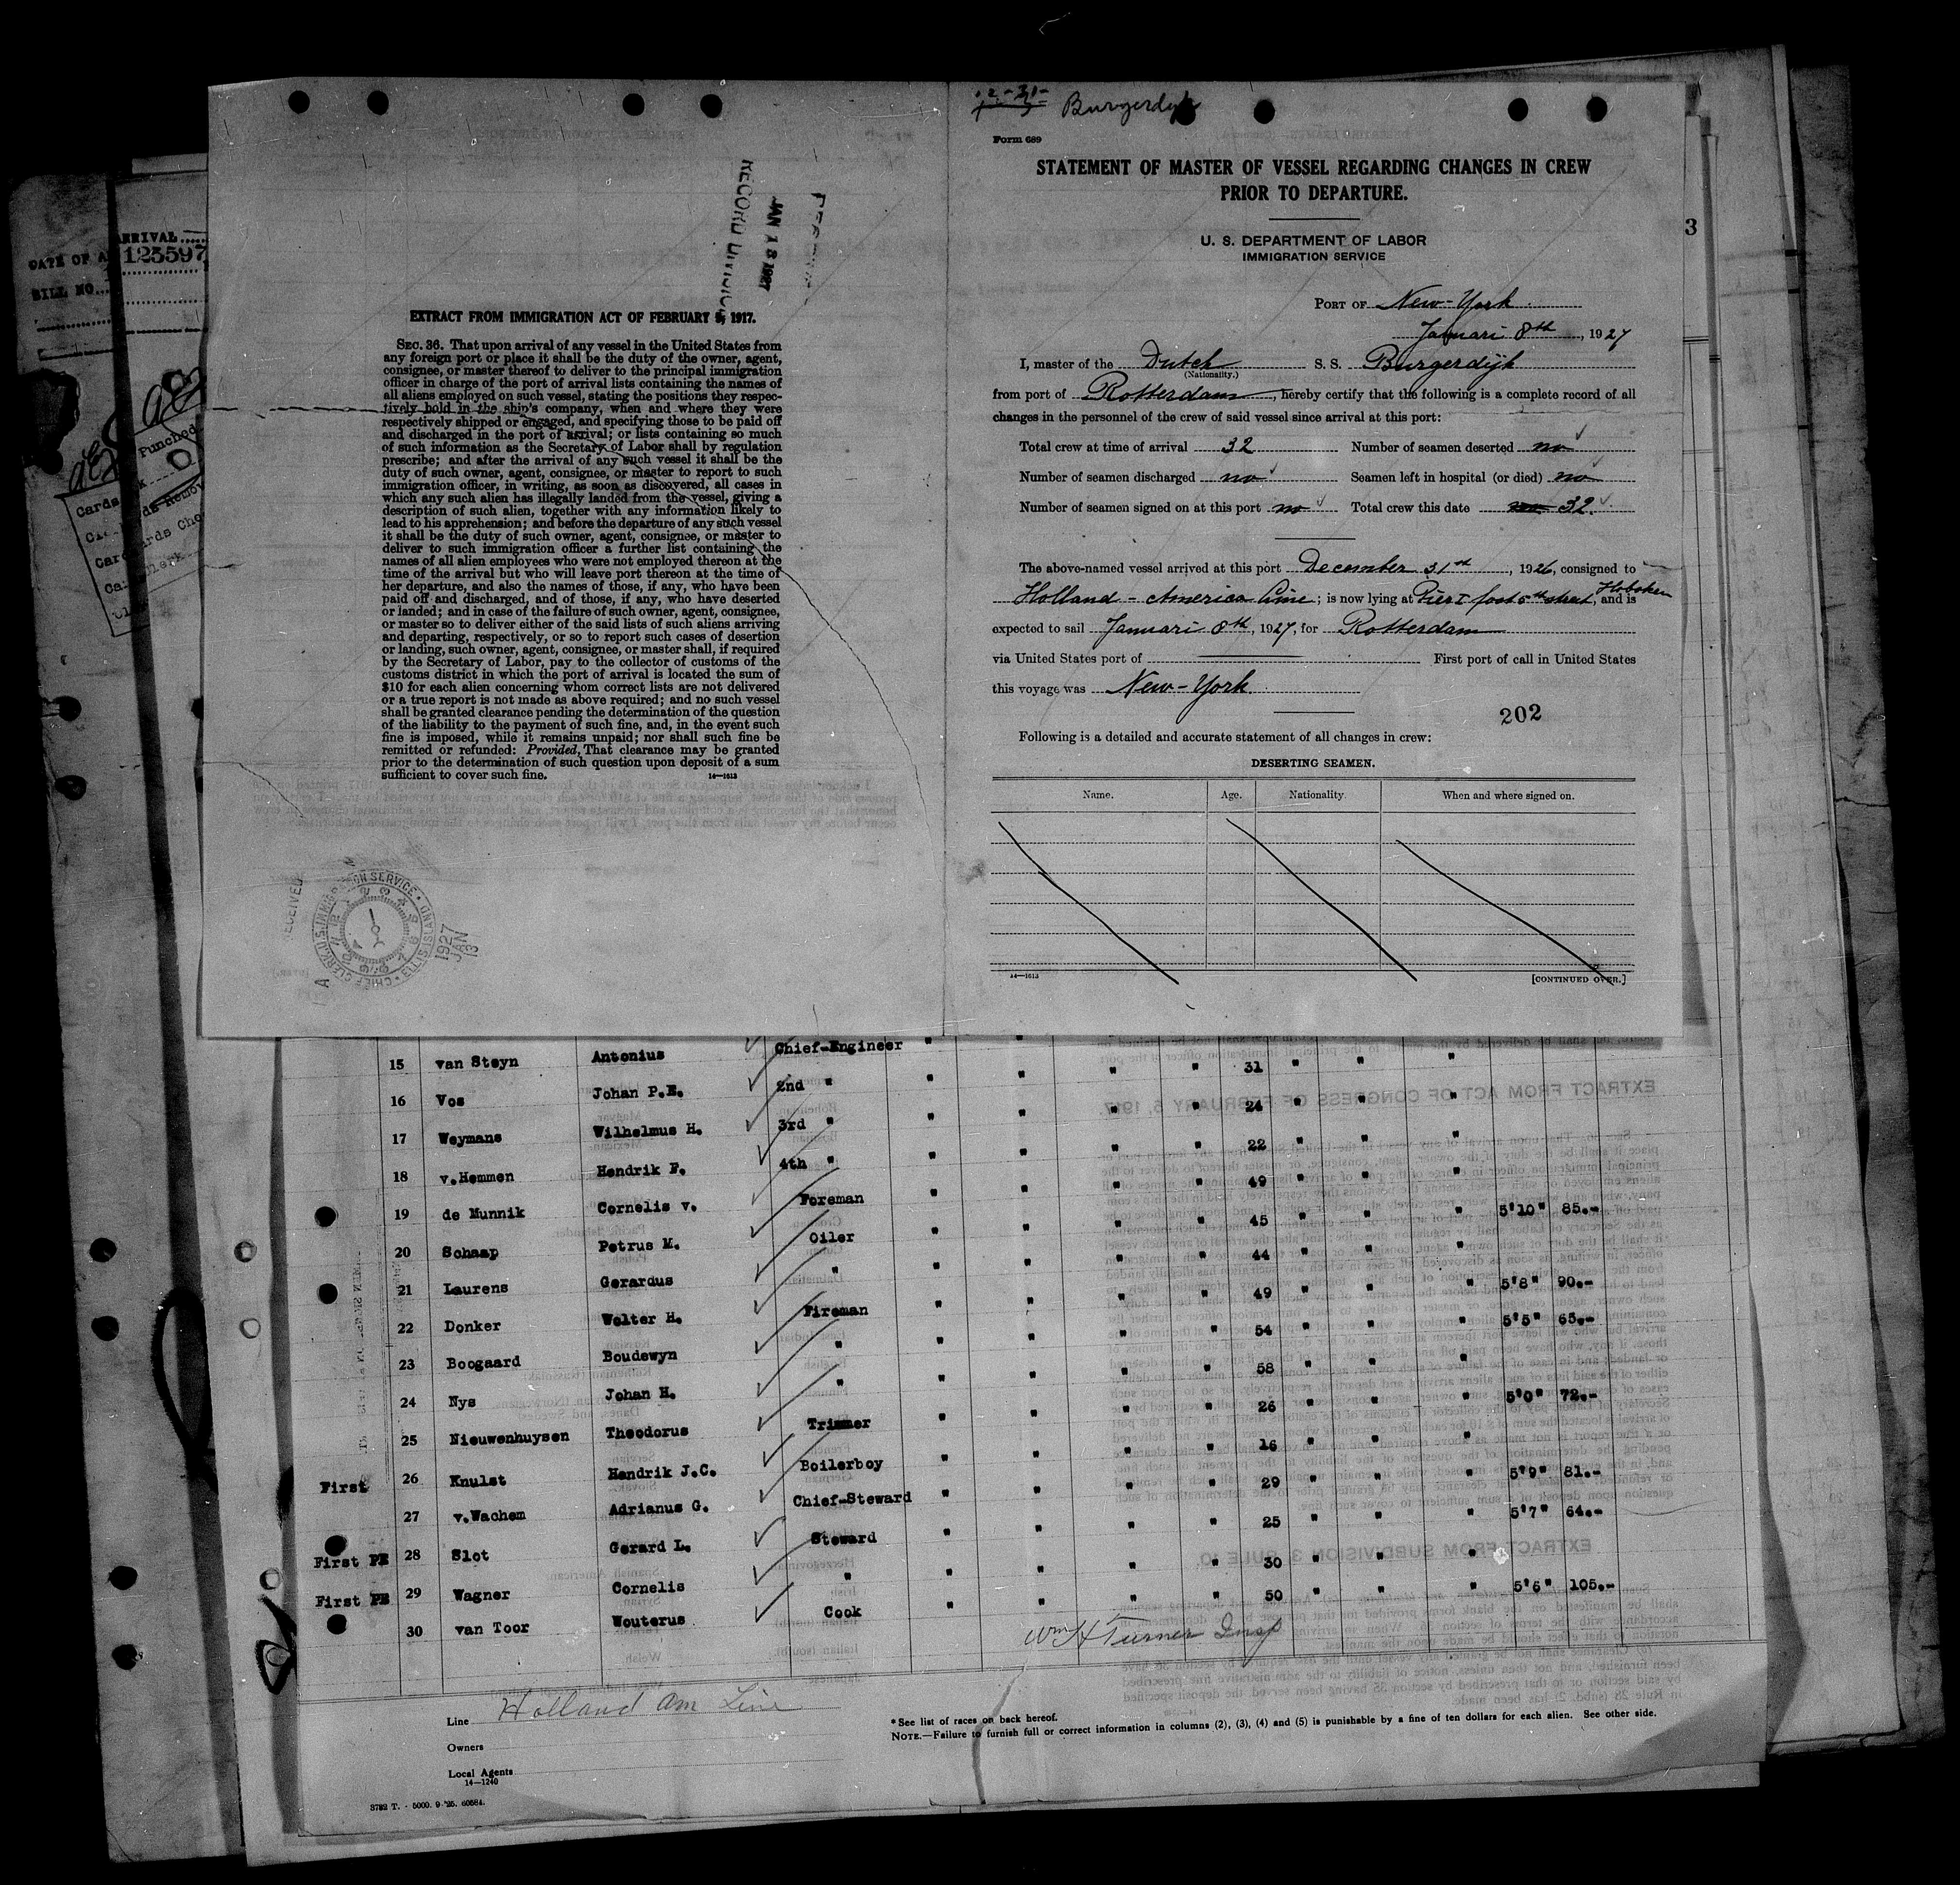 12-31- Burgerdyk
Form 689
STATEMENT OF MASTER OF VESSEL REGARDING CHANGES IN CREW
PRIOR TO DEPARTURE.
U. S. DEPARTMENT OF LABOR
IMMIGRATION SERVICE
PORT OF New-York
Januari 8th, 1927
I, master of the Dutch S. S. Burgerdijk
(Nationality.)
from port of Rotterdam, hereby certify that the following is a complete record of all
changes in the personnel of the crew of said vessel since arrival at this port:
Total crew at time of arrival 32 Number of seamen deserted no
Number of seamen discharged no Seamen left in hospital (or died) no
Number of seamen signed on at this port no Total crew this date no 32.
The above-named vessel arrived at this port December 31st, 1926, consigned to
Holland - America Line; is now lying at Pier I foot 5th street, Hoboken and is
expected to sail Januari 8th, 1927, for Rotterdam
via United States port of First port of call in United States
this voyage was New-York.
202
Following is a detailed and accurate statement of all changes in crew:
DESERTING SEAMEN.
Name. Age. Nationality When and where signed on.
14—1613 [CONTINUED OVER.]
RECORD DIVISION
JAN 18 1927
EXTRACT FROM IMMIGRATION ACT OF FEBRUARY 5, 1917.
SEC. 36. That upon arrival of any vessel in the United States from
any foreign port or place it shall be the duty of the owner, agent,
consignee, or master thereof to deliver to the principal immigration
officer in charge of the port of arrival lists containing the names of
all aliens employed on such vessel, stating the positions they respec-
tively hold in the ship's company, when and where they were
respectively shipped or engaged, and specifying those to be paid off
and discharged in the port of arrival; or lists containing so much
of such information as the Secretary of Labor shall by regulation
prescribe; and after the arrival of any such vessel it shall be the
duty of such owner, agent, consignee, or master to report to such
immigration officer, in writing, as soon as discovered, all cases in
which any such alien has illegally landed from the vessel, giving a
description of such alien, together with any information likely to
lead to his apprehension; and before the departure of any such vessel
it shall be the duty of such owner, agent, consignee, or master to
deliver to such immigration officer a further list containing the
names of all alien employees who were not employed thereon at the
time of the arrival but who will leave port thereon at the time of
her departure, and also the names of those, if any, who have been
paid off and discharged, and of those, if any, who have deserted
or landed; and in case of the failure of such owner, agent, consignee,
or master so to deliver either of the said lists of such aliens arriving
and departing, respectively, or so to report such cases of desertion
or landing, such owner, agent, consignee, or master shall, if required
by the Secretary of Labor, pay to the collector of customs of the
customs district in which the port of arrival is located the sum of
$10 for each alien concerning whom correct lists are not delivered
or a true report is not made as above required; and no such vessel
shall be granted clearance pending the determination of the question
of the liability to the payment of such fine, and, in the event such
fine is imposed, while it remains unpaid; nor shall such fine be
remitted or refunded: Provided, That clearance may be granted
prior to the determination of such question upon deposit of a sum
sufficient to cover such fine. 14—1613
RECEIVED
CHIEF CLERK, U.S. IMMIGRATION SERVICE · ELLIS ISLAND
1927 JAN 13
DATE OF A
ARRIVAL
123597
BILL NO
Punched
Cards
Clerk
3
15 van Steyn Antonius Chief-Engineer " " " " 31 " " "
16 Vos Johan P.E. 2nd " " " " " 24 " " "
17 Weymans Wilhelmus H. 3rd " " " " " 22 " " "
18 v.Hemmen Hendrik F. 4th " " " " " 49 " " "
19 de Munnik Cornelis v. Foreman " " " " 45 " " " 5'10" 85.-
20 Schaap Petrus M. Oiler " " " " 44 " " "
21 Laurens Gerardus " " " " " 49 " " " 5'8" 90.-
22 Donker Wolter H. Fireman " " " " 54 " " " 5'5" 65.-
23 Boogaard Boudewyn " " " " " 58 " " "
24 Nys Johan H. " " " " " 26 " " " 5'0" 72.-
25 Nieuwenhuysen Theodorus Trimmer " " " " 16 " " "
First 26 Knulst Hendrik J.C. Boilerboy " " " " 29 " " " 5'9" 81.-
27 v.Wachem Adrianus G. Chief-Steward " " " " 25 " " " 5'7" 64.-
First PE 28 Slot Gerard L. Steward " " " " 30 " " "
First PE 29 Wagner Cornelis " " " " " 50 " " " 5'6" 105.-
30 van Toor Wouterus Cook "
Wm H Turner Insp
Line Holland Am Line
Owners
Local Agents
14—1240
* See list of races on back hereof.
NOTE.—Failure to furnish full or correct information in columns (2), (3), (4) and (5) is punishable by a fine of ten dollars for each alien. See other side.
3782 T. - 5000. 9-'25. 60584.